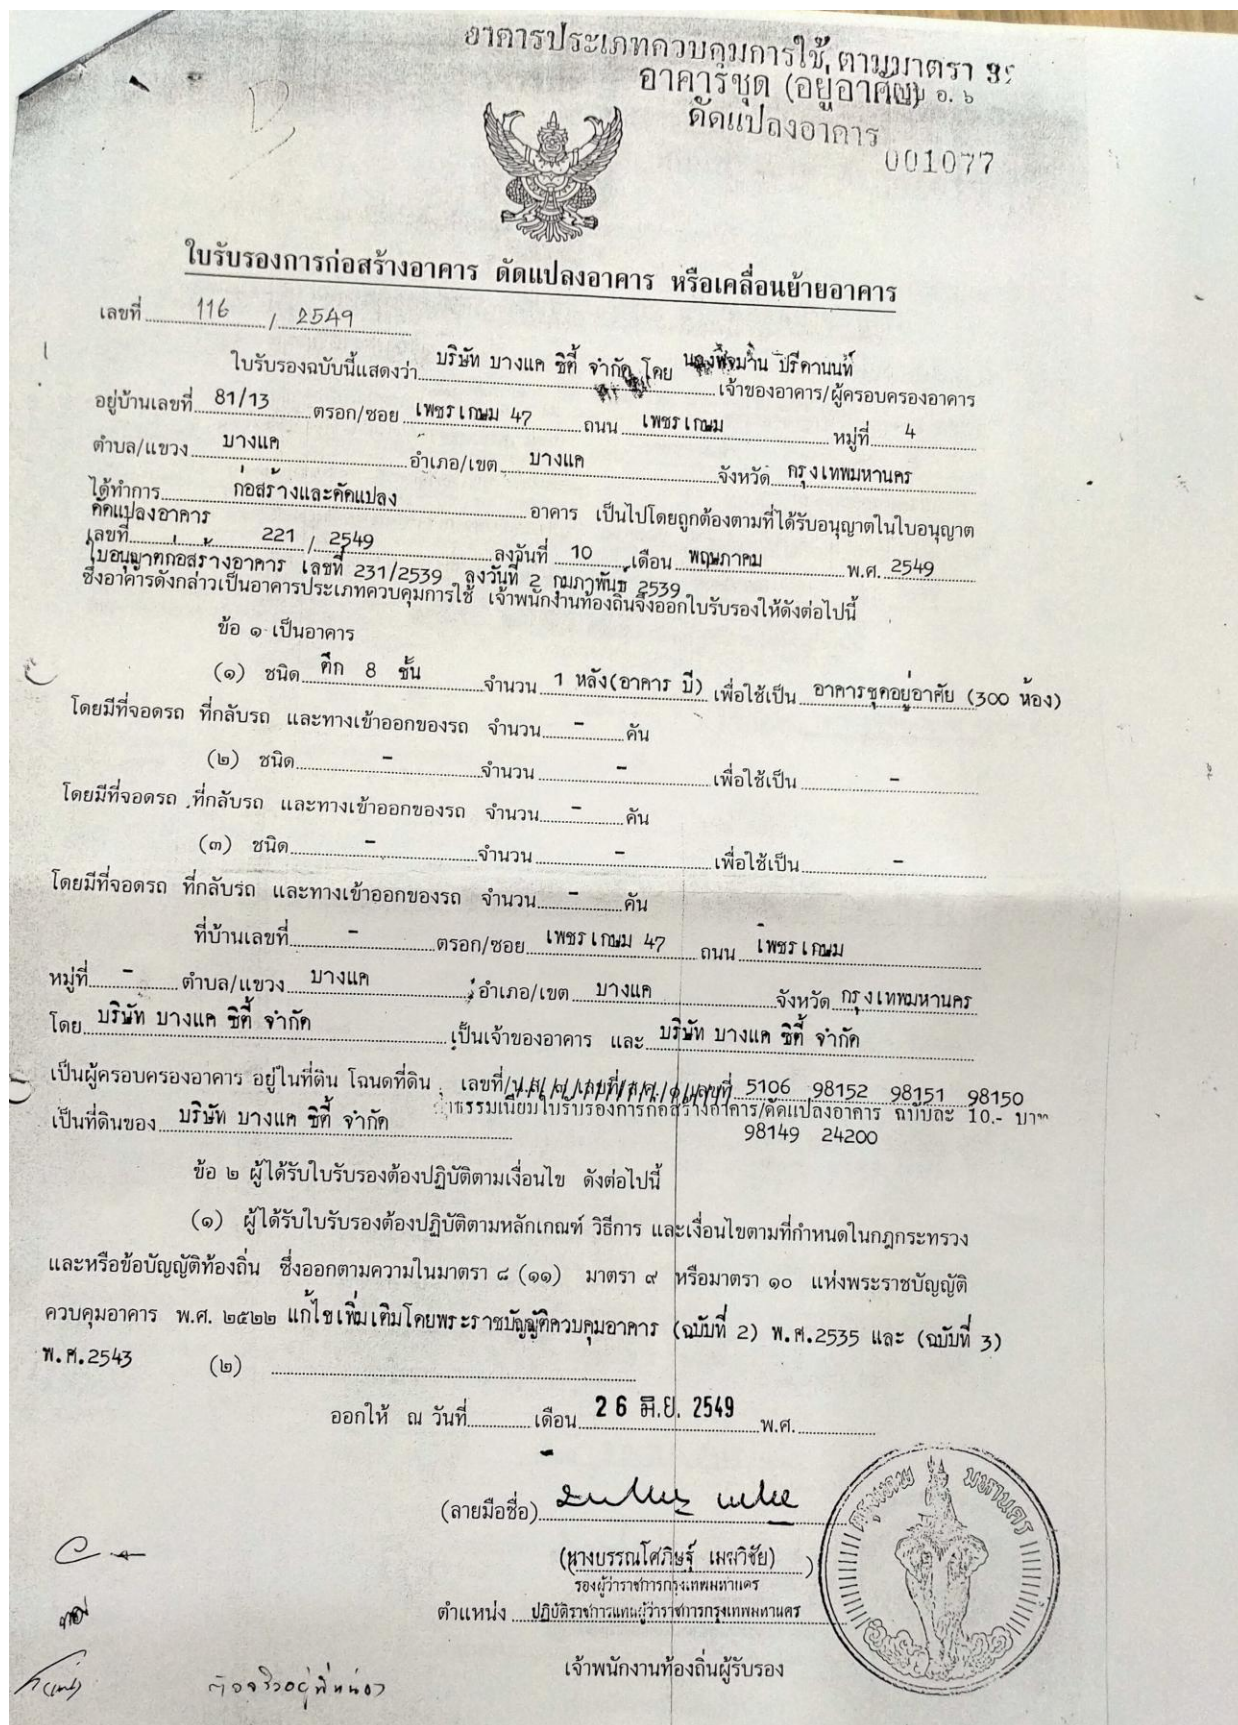 อาคารประเภทควบคุมการใช้ ตามมาตรา
อาคารชุด (อยู่อาศัย) อ. ๖
ดัดแปลงอาคาร
001077
ใบรับรองการก่อสร้างอาคาร ดัดแปลงอาคาร หรือเคลื่อนย้ายอาคาร
เลขที่ 116 / 2549
ใบรับรองฉบับนี้แสดงว่า บริษัท บางแค ซิตี้ จำกัด โดย ปรีดานนท์ เจ้าของอาคาร/ผู้ครอบครองอาคาร
อยู่บ้านเลขที่ 81/13 ตรอก/ซอย เพชรเกษม 47 ถนน เพชรเกษม หมู่ที่ 4
ตำบล/แขวง บางแค อำเภอ/เขต บางแค จังหวัด กรุงเทพมหานคร
ได้ทำการ ก่อสร้างและดัดแปลง อาคาร เป็นไปโดยถูกต้องตามที่ได้รับอนุญาตในใบอนุญาต
ดัดแปลงอาคาร
เลขที่ 221 / 2549 ลงวันที่ 10 เดือน พฤษภาคม พ.ศ. 2549
ใบอนุญาตก่อสร้างอาคาร เลขที่ 231/2539 ลงวันที่ 2 กุมภาพันธ์ 2539
ซึ่งอาคารดังกล่าวเป็นอาคารประเภทควบคุมการใช้ เจ้าพนักงานท้องถิ่นจึงออกใบรับรองให้ดังต่อไปนี้
ข้อ ๑ เป็นอาคาร
(๑) ชนิด ตึก 8 ชั้น จำนวน 1 หลัง(อาคาร บี) เพื่อใช้เป็น อาคารชุดอยู่อาศัย (300 ห้อง)
โดยมีที่จอดรถ ที่กลับรถ และทางเข้าออกของรถ จำนวน - คัน
(๒) ชนิด - จำนวน - เพื่อใช้เป็น -
โดยมีที่จอดรถ ที่กลับรถ และทางเข้าออกของรถ จำนวน - คัน
(๓) ชนิด - จำนวน - เพื่อใช้เป็น -
โดยมีที่จอดรถ ที่กลับรถ และทางเข้าออกของรถ จำนวน - คัน
ที่บ้านเลขที่ - ตรอก/ซอย เพชรเกษม 47 ถนน เพชรเกษม
หมู่ที่ - ตำบล/แขวง บางแค อำเภอ/เขต บางแค จังหวัด กรุงเทพมหานคร
โดย บริษัท บางแค ซิตี้ จำกัด เป็นเจ้าของอาคาร และ บริษัท บางแค ซิตี้ จำกัด
เป็นผู้ครอบครองอาคาร อยู่ในที่ดิน โฉนดที่ดิน เลขที่ 5106 98152 98151 98150
ค่าธรรมเนียมใบรับรองการก่อสร้างอาคาร/ดัดแปลงอาคาร ฉบับละ 10.- บาท
เป็นที่ดินของ บริษัท บางแค ซิตี้ จำกัด 98149 24200
ข้อ ๒ ผู้ได้รับใบรับรองต้องปฏิบัติตามเงื่อนไข ดังต่อไปนี้
(๑) ผู้ได้รับใบรับรองต้องปฏิบัติตามหลักเกณฑ์ วิธีการ และเงื่อนไขตามที่กำหนดในกฎกระทรวง
และหรือข้อบัญญัติท้องถิ่น ซึ่งออกตามความในมาตรา ๘ (๑๑) มาตรา ๙ หรือมาตรา ๑๐ แห่งพระราชบัญญัติ
ควบคุมอาคาร พ.ศ. ๒๕๒๒ แก้ไขเพิ่มเติมโดยพระราชบัญญัติควบคุมอาคาร (ฉบับที่ 2) พ.ศ.2535 และ (ฉบับที่ 3)
พ.ศ.2543 (๒)
ออกให้ ณ วันที่ เดือน 26 มิ.ย. 2549 พ.ศ.
(ลายมือชื่อ)
(นางบรรณโศภิษฐ์ เมฆวิชัย)
รองผู้ว่าราชการกรุงเทพมหานคร
ตำแหน่ง ปฏิบัติราชการแทนผู้ว่าราชการกรุงเทพมหานคร
กรุงเทพมหานคร
เจ้าพนักงานท้องถิ่นผู้รับรอง